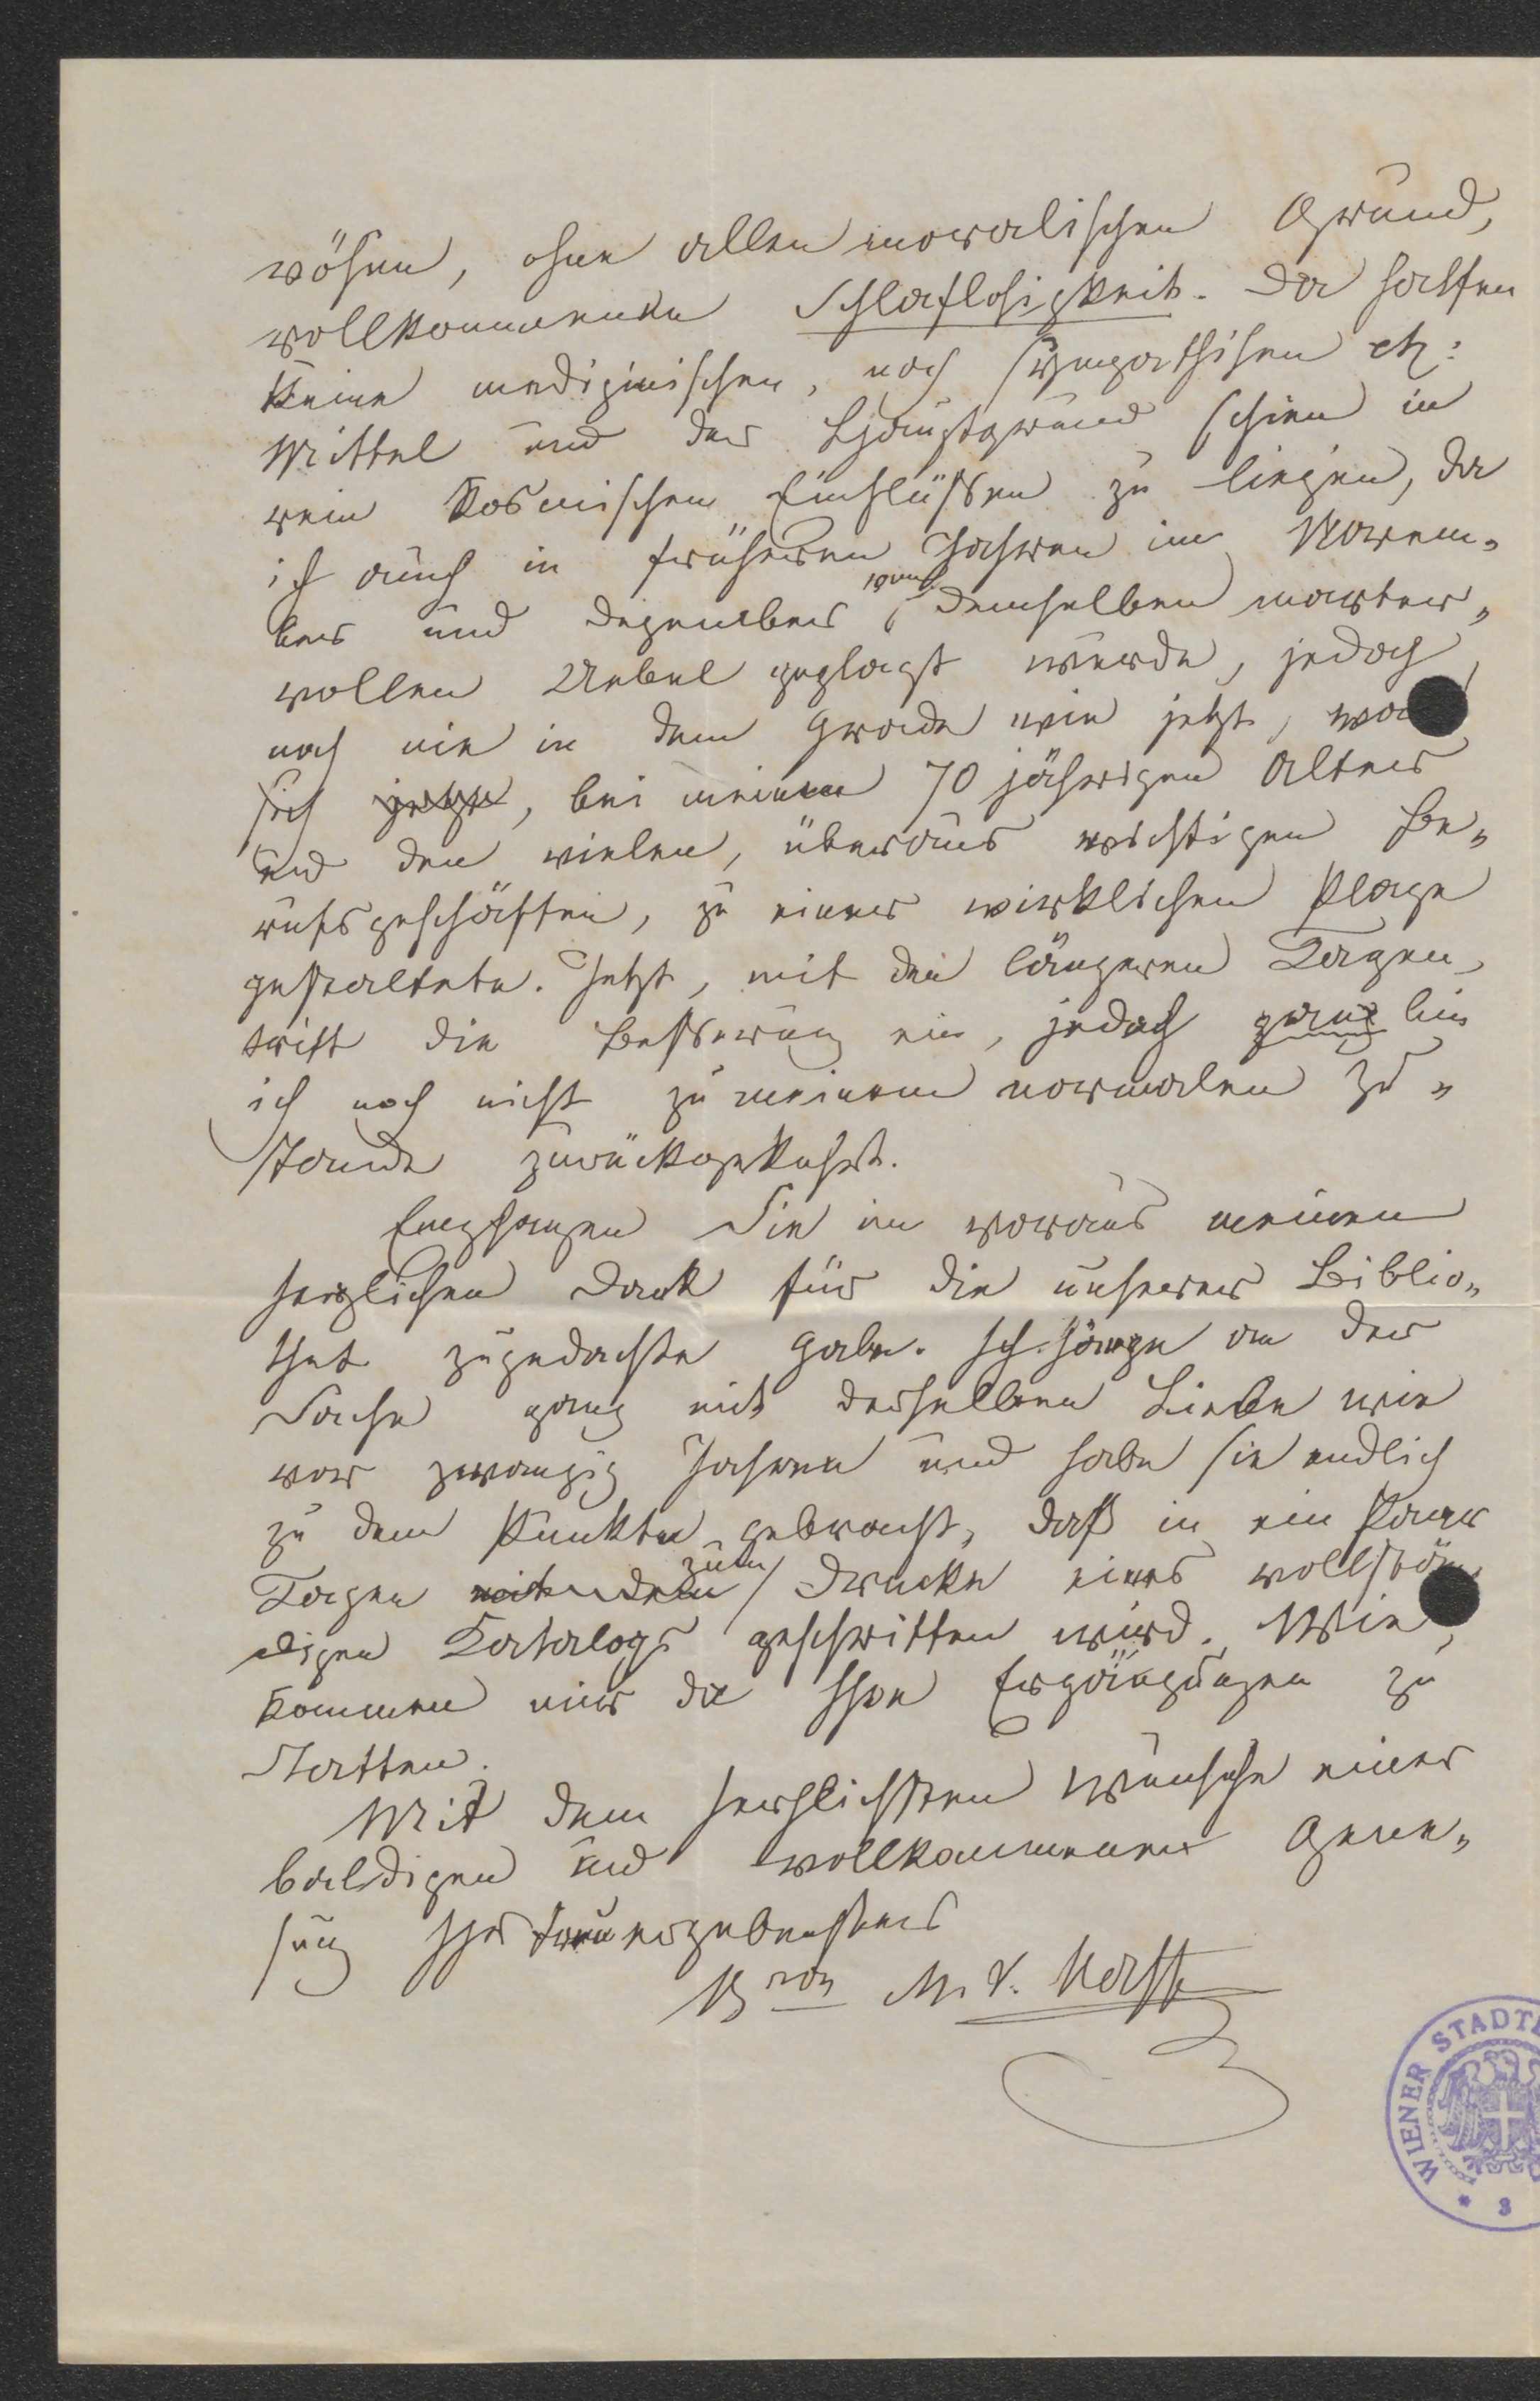 vösen, ohne allen moralischen Grund,
vollkommenen Schlaflosigkeit. Da halfen
keine medizinischen, noch sympathischen etz:
Mittel und der Hauptgrund schien in
rein kosmischen Einflüßen zu liegen, da
ich auch in früheren Jahren im Novem„
ber und Dezember von demselben marter„
vollen Uebel geplagt wurde, jedoch
noch nie in dem Grade wie jetzt, wo
sich jetzt, bei meinem 70 jährigen Alter
und den vielen, überaus wichtigen Be„
rufsgeschäften, zu einer wirklichen Plage
gestaltete. Jetzt, mit den längeren Tagen,
tritt die Besserung ein, jedoch ganz bin
ich noch nicht zu meinem normalen Zu„
stande zurückgekehrt.
Empfangen Sie im voraus meinen
herzlichen Dank für die unserer Biblio„
thek zugedachte Gabe. Ich hänge an der
Sache ganz mit derselben Liebe wie
vor zwanzig Jahren und habe sie endlich
zu dem Punkte gebracht, daß in ein Paar
Tagen mit dem zum Drucke eines vollstän
digen Katalogs geschritten wird. Wie
kommen mir da Ihre Ergänzungen zu
Statten.
Mit dem herzlichsten Wunsche einer
baldigen und vollkommenen Gene„
sung Ihr treuergebenster
B ron M. v.
WIENER STADT
* 3